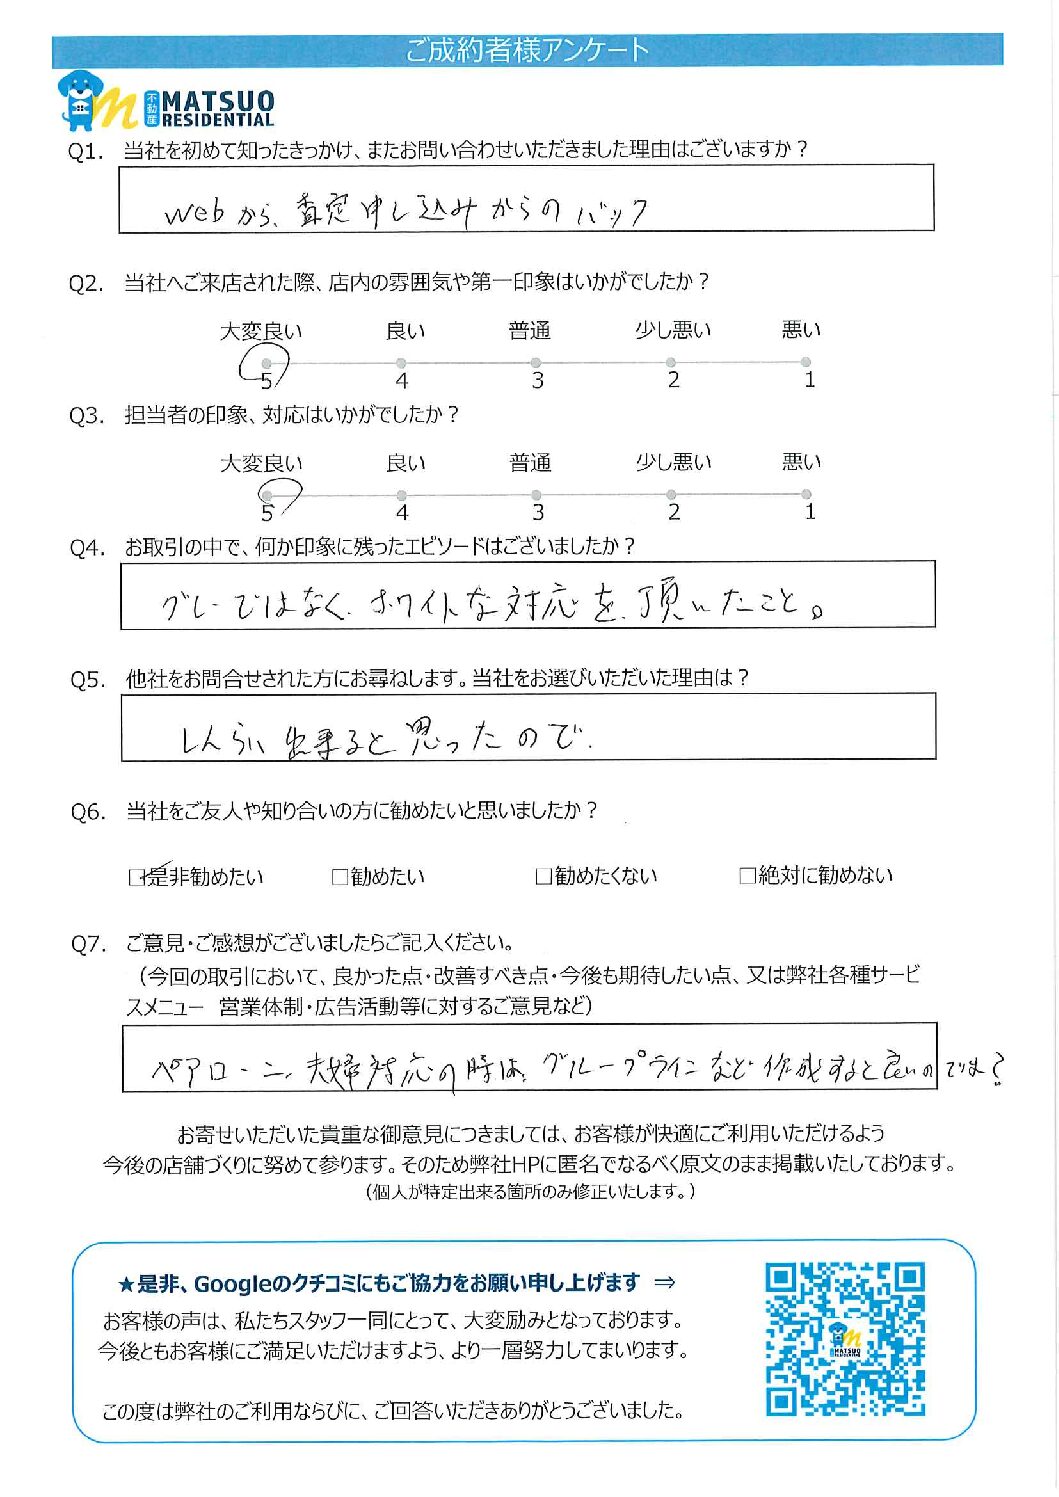 ご成約者様アンケート
不動産 MATSUO RESIDENTIAL
Q1. 当社を初めて知ったきっかけ、またお問い合わせいただきました理由はございますか？
Webから、査定申し込みからのバック
Q2. 当社へご来店された際、店内の雰囲気や第一印象はいかがでしたか？
大変良い 良い 普通 少し悪い 悪い
5 4 3 2 1
Q3. 担当者の印象、対応はいかがでしたか？
大変良い 良い 普通 少し悪い 悪い
5 4 3 2 1
Q4. お取引の中で、何か印象に残ったエピソードはございましたか？
グレーではなく、ホワイトな対応を、頂いたこと。
Q5. 他社をお問合せされた方にお尋ねします。当社をお選びいただいた理由は？
しんらい出来ると思ったので.
Q6. 当社をご友人や知り合いの方に勧めたいと思いましたか？
□是非勧めたい □勧めたい □勧めたくない □絶対に勧めない
Q7. ご意見・ご感想がございましたらご記入ください。
（今回の取引において、良かった点・改善すべき点・今後も期待したい点、又は弊社各種サービ
スメニュー 営業体制・広告活動等に対するご意見など）
ペアローン、夫婦対応の時は、グループラインなど作成すると良いのでは？
お寄せいただいた貴重な御意見につきましては、お客様が快適にご利用いただけるよう
今後の店舗づくりに努めて参ります。そのため弊社HPに匿名でなるべく原文のまま掲載いたしております。
（個人が特定出来る箇所のみ修正いたします。）
★是非、Googleのクチコミにもご協力をお願い申し上げます ⇒
お客様の声は、私たちスタッフ一同にとって、大変励みとなっております。
今後ともお客様にご満足いただけますよう、より一層努力してまいります。
この度は弊社のご利用ならびに、ご回答いただきありがとうございました。
MATSUO
RESIDENTIAL